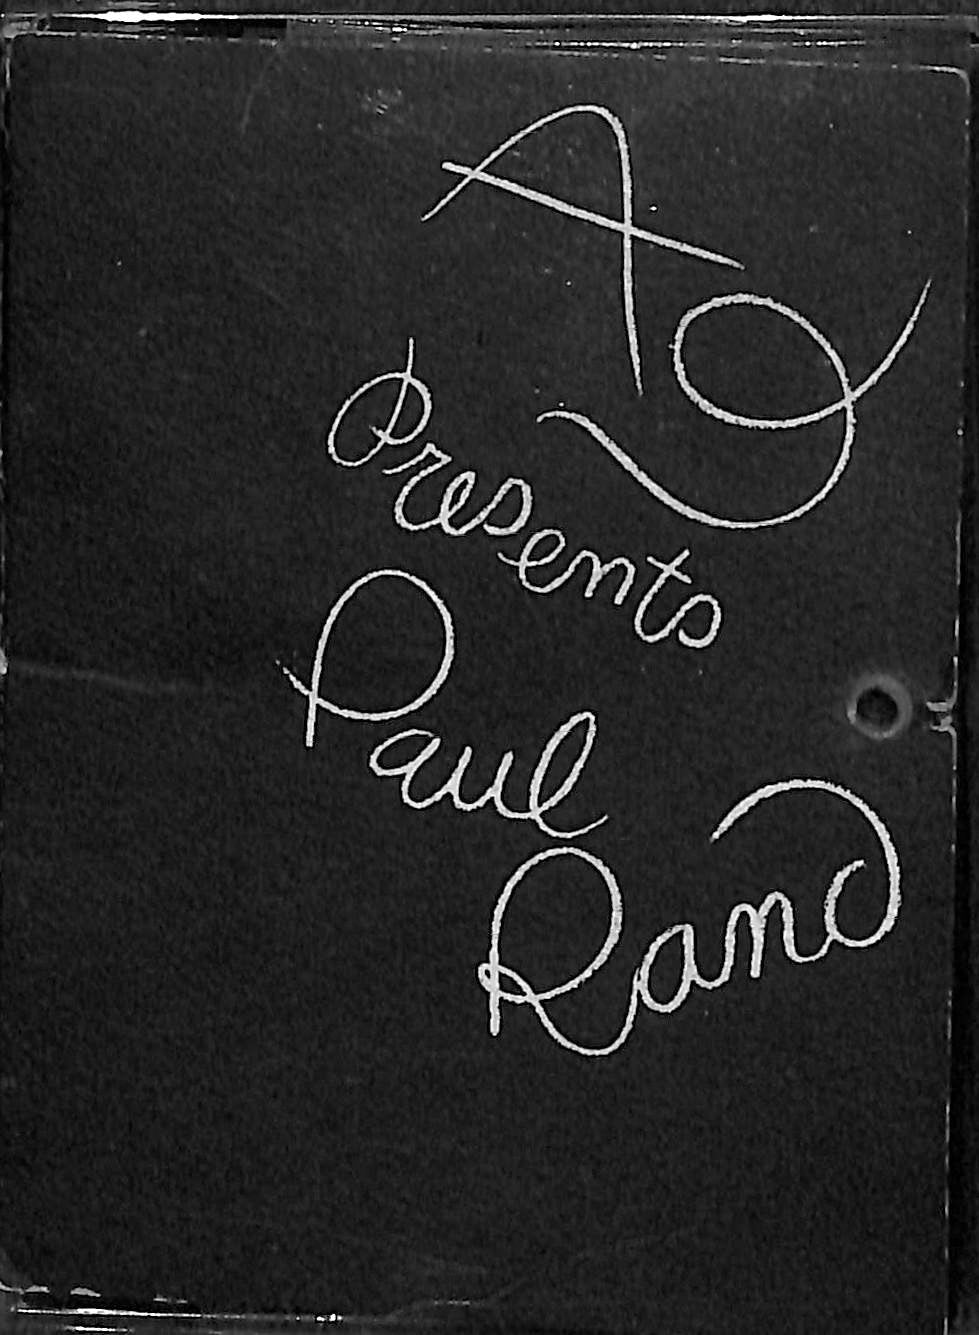 AD
Presents
Paul
Rand